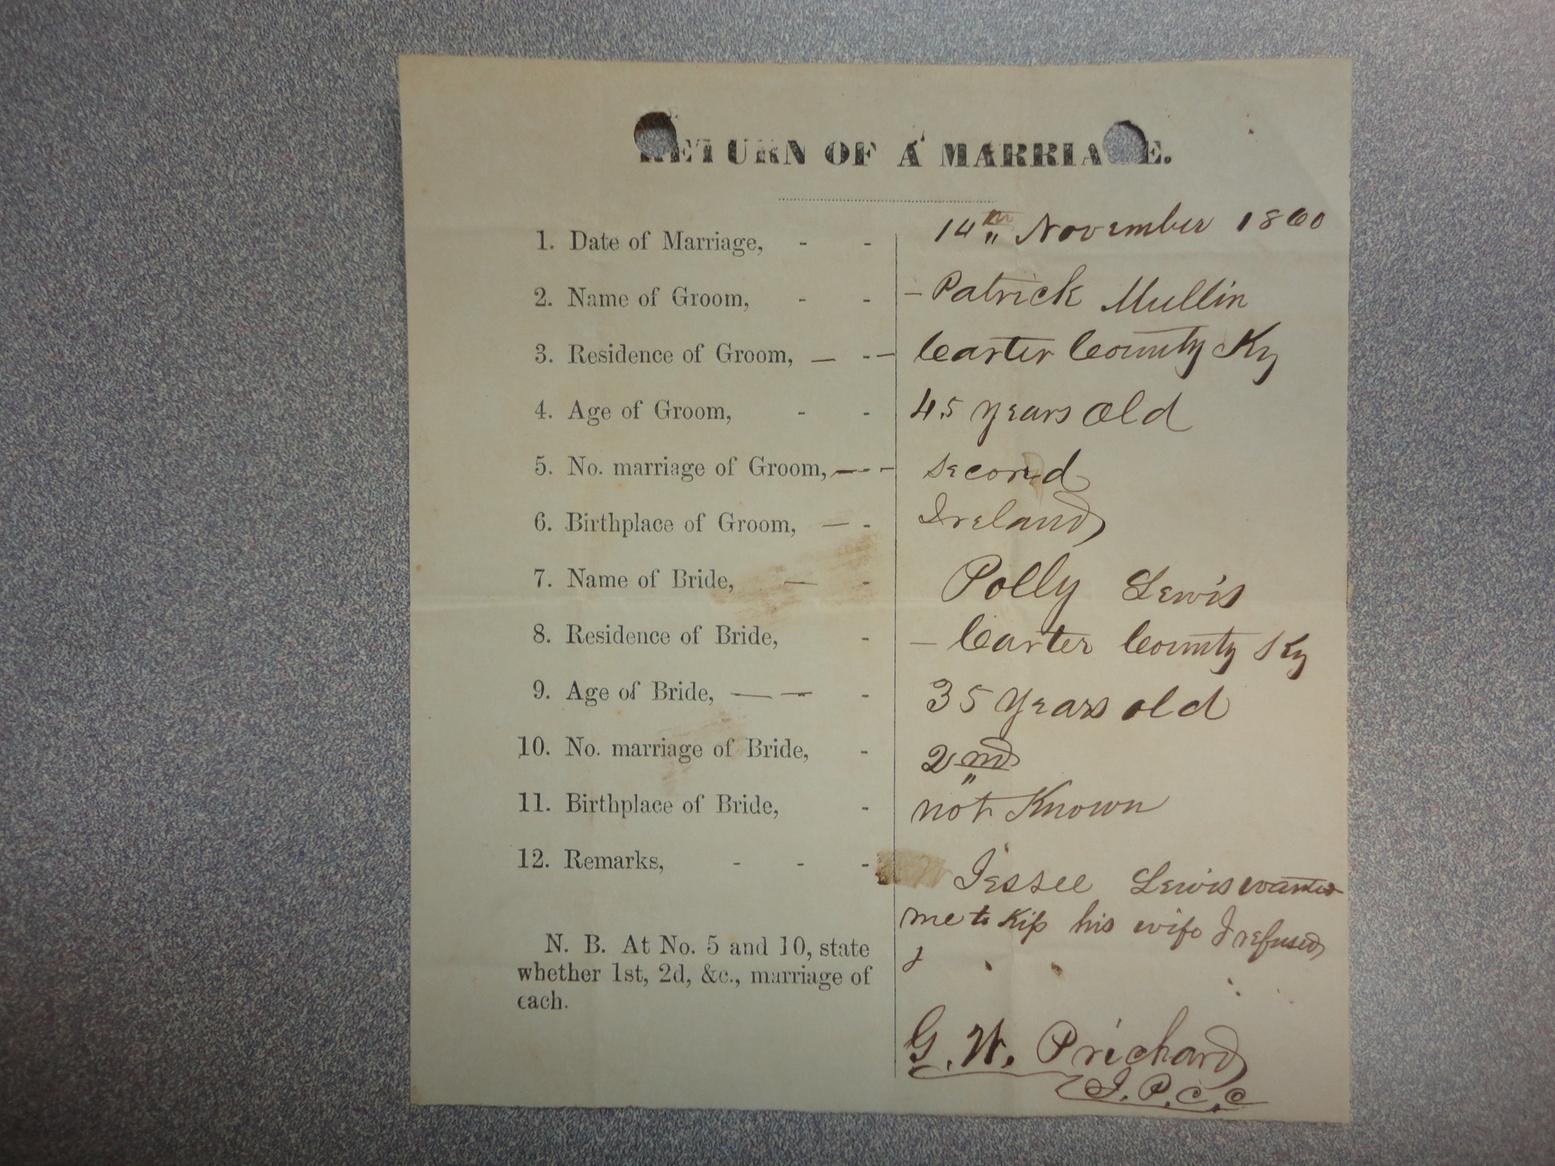 RETURN OF A MARRIAGE.
1. Date of Marriage, - - 14th November 1860
2. Name of Groom, - - - Patrick Mullin
3. Residence of Groom, — - - Carter County Ky
4. Age of Groom, - - 45 years old
5. No. marriage of Groom, — - - second
6. Birthplace of Groom, — - Ireland
7. Name of Bride, — - Polly Lewis
8. Residence of Bride, - - Carter County Ky
9. Age of Bride, — — - 35 years old
10. No. marriage of Bride, - 2nd
11. Birthplace of Bride, - not Known
12. Remarks, - - - Jessee Lewis wanted
me to Kiss his wife I refused
N. B. At No. 5 and 10, state
whether 1st, 2d, &c., marriage of
each.
G. W. Prichard
J. P. C. C